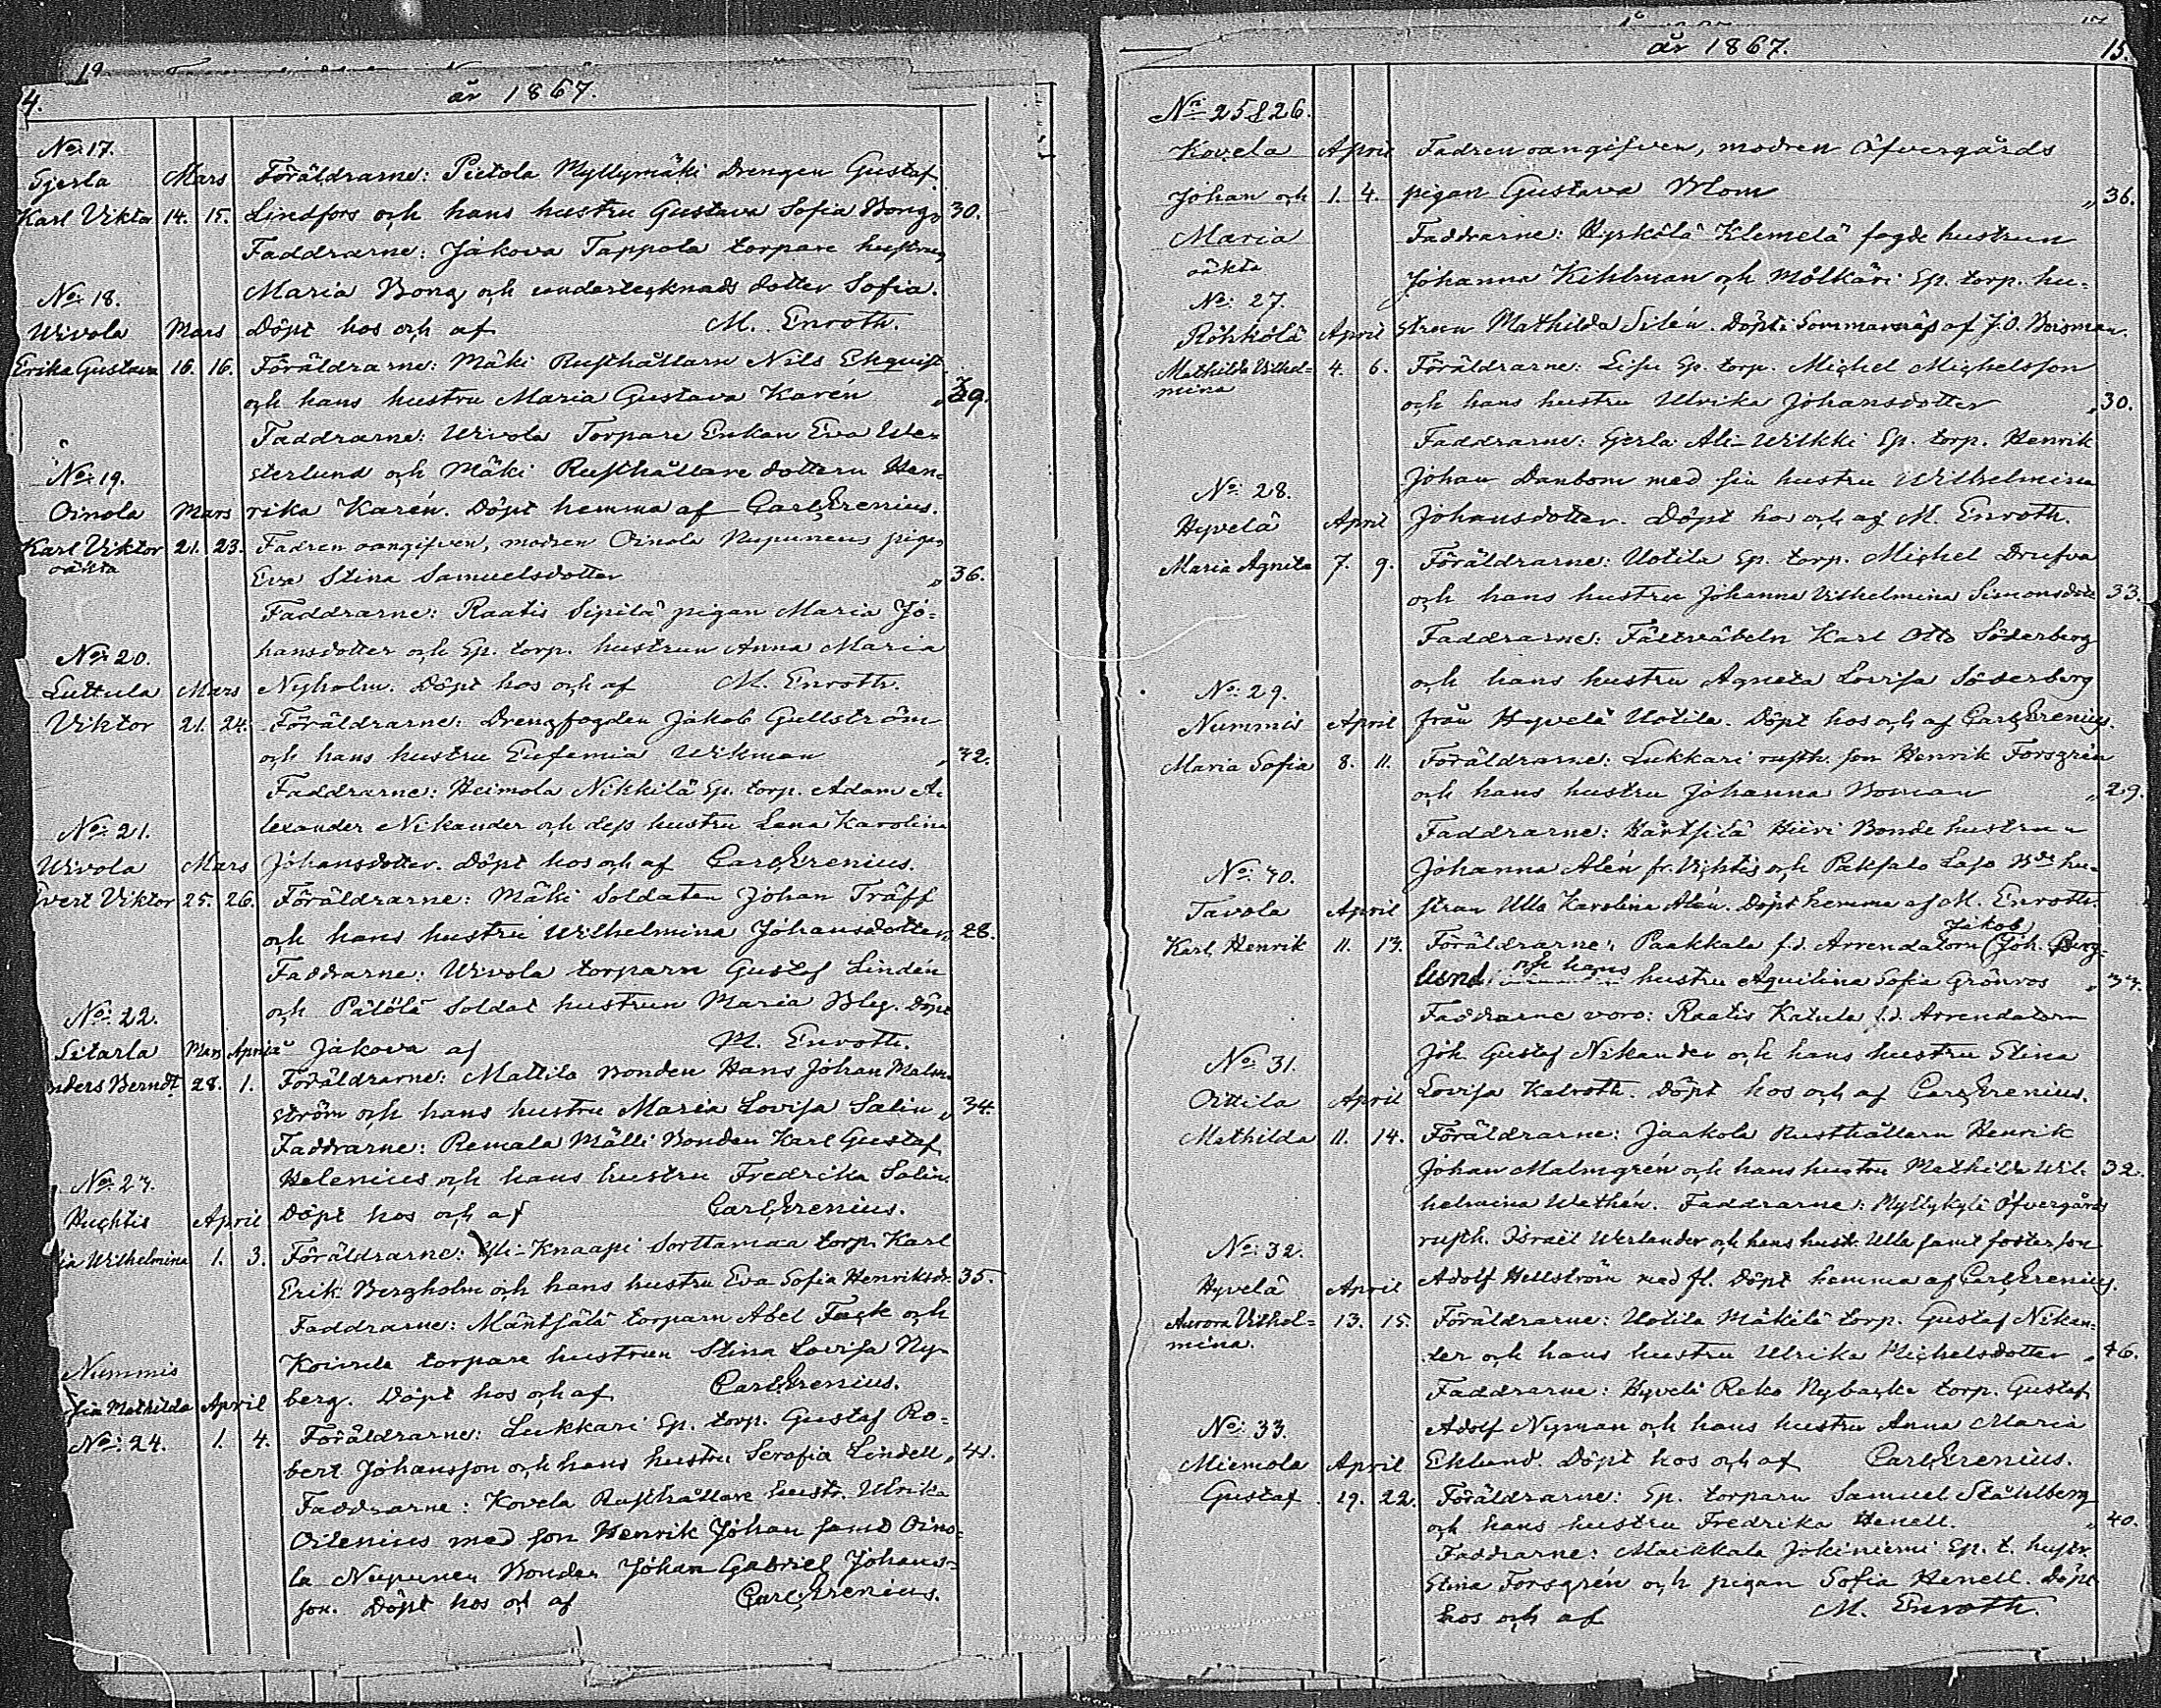 4.
år 1867.
No: 17.
Gjerla Mars Föräldrarne: Pietola Myllymäki Drengen Gustaf
Karl Viktor 14. 15. Lindfors och hans hustru Gustava Sofia Bong „ 30.
Faddrarne: Jakova Tappola torpare hustrun
No: 18. Maria Bong och undertecknads dotter Sofia.
Uivola Mars Döpt hos och af M. Enroth.
Erika Gustava 16. 16. Föräldrarne: Mäki Rusthållarn Nils Ekquist
och hans hustru Maria Gustava Karén „ 39.
Faddrarne: Uivola Torpare Enkan Eva We-
No: 19. sterlund och Mäki Rusthållare dottern Hen-
Oinola Mars rika Karén. Döpt hemma af Carl Grenius.
Karl Viktor 21. 23. Fadren oangifven, modren Oinola Nupuneus pigan
oäkta Eva Stina Samuelsdotter „ 36.
Faddrarne: Raatis Sipilä pigan Maria Jo-
No: 20. hansdotter och Sp. torp. hustrun Anna Maria
Luttula Mars Nyholm. Döpt hos och af M. Enroth.
Viktor 21. 24. Föräldrarne: Drengfogden Jakob Gullström
och hans hustru Eufemia Wikman „ 32.
Faddrarne: Heimola Nikkilä Sp. torp. Adam A-
No: 21. lexander Nikander och dess hustru Lena Karolina
Uivola Mars Johansdotter. Döpt hos och af Carl Grenius.
Evert Viktor 25. 26. Föräldrarne: Mäki Soldaten Johan Träff
och hans hustru Wilhelmina Johansdotter „ 28.
Faddrarne: Uivola torparn Gustaf Lindén
No: 22. och Pälölä Soldat hustrun Maria Bly. Döpt
Sitarla Mars April å Jakova af M. Enroth.
nders Berndt 28. 1. Föräldrarne: Mattila Bonden Hans Johan Malm-
ström och hans hustru Maria Lovisa Salin „ 34.
Faddrarne: Remala Mälli Bonden Karl Gustaf
No: 23. Helenius och hans hustru Fredrika Salin
Huhtis April Döpt hos och af Carl Grenius.
ia Wilhelmina 1. 3. Föräldrarne: Yli-Knaapi Sorttamaa torp. Karl
Erik Bergholm och hans hustru Eva Sofia Henriksdr. 35.
Faddrarne: Mäntsälä torparn Abel Fack och
torpare hustrun Stina Lovisa Ny-
Nummis berg. Döpt hos och af Carl Grenius.
fia Mathilda April Föräldrarne: Lukkari Sp. torp. Gustaf Ro-
No: 24. 1. 4. bert Johansson och hans hustru Serafia Lindell „ 41.
Faddrarne: Kovela Rusthållare hustr. Ulrika
Oilenius med son Henrik Johan samt Oino-
la Nupunen Bonden Johan Gabriel Johans-
son. Döpt hos och af Carl Grenius.
år 1867. 15.
Nri 25 & 26.
Kovela April Fadren oangifven, modren Öfvergårds
Johan och 1. 4. pigan Gustava Blom „ 36.
Maria Faddrarne: Hyrkölä Klemelä fogde hustrun
oäkta Johanna Kihlman och Mölkäri Sp. torp. hu-
No: 27. strun Mathilda Silén. Döpt i Sommarnäs af J. O. Boisman.
Röhkölä April
Mathilda Vilhel- 4. 6. Föräldrarne: Lisu Sp. torp. Michel Michelsson
mina och hans hustru Ulrika Johansdotter „ 30.
Faddrarne: Gjerla Ali-Wikki Sp. torp. Henrik
No: 28. Johan Danbom med sin hustru Wilhelmina
Hyvelä April Johansdotter. Döpt hos och af M. Enroth.
Maria Agneta 7. 9. Föräldrarne: Uotila Sp. torp. Michel Drufva
och hans hustru Johanna Vilhelmina Simonsdott 33.
Faddrarne: Fältväbeln Karl Otto Söderberg
No: 29. och hans hustru Agneta Lovisa Söderberg
Nummis April från Hyvelä Uotila. Döpt hos och af Carl Grenius.
Maria Sofia 8. 11. Föräldrarne: Lukkari rusth. son Henrik Forsgrén
och hans hustru Johanna Boman „ 29.
Faddrarne: Härtsilä Hiivi Bonde hustrun
No: 30. Johanna Alén fr. Vichtis och Pakpalo Laso Bde hu-
Tavola April strun Ulla Karolina Alén. Döpt hemma af M. Enroth.
Jakob
Karl Henrik 11. 13. Föräldrarne: Paakkala f.d. Arrendatorn (Joh. Berg-
lund och hans hustru Aquilina Sofia Grönros „ 33.
Faddrarne voro: Raatis Katula f.d. Arrendatorn
No: 31. Joh. Gustaf Nikander och hans hustru Stina
Oittila April Lovisa Kalroth. Döpt hos och af Carl Grenius.
Mathilda 11. 14. Föräldrarne: Jaakola Rusthållarn Henrik
Johan Malmgrén och hans hustru Mathilda Wil- 32.
helmina Wethén. Faddrarne: Myllykylä Öfvergårds
No: 32. rusth. Israël Werlander och hans hustr. Ulla samt foster son
Hyvelä April Adolf Hellström med fl. Döpt hemma af Carl Grenius.
Aurora Vilhel- 13. 15. Föräldrarne: Uotila Mäkilä torp. Gustaf Nikan-
mina. der och hans hustru Ulrika Michelsdotter „ 46.
Faddrarne: Hyvelä Reko Nybacka torp. Gustaf
No: 33. Adolf Nyman och hans hustru Anna Maria
Miemola April Eklund. Döpt hos och af Carl Grenius.
Gustaf 19. 22. Föräldrarne: Sp. torparn Samuel Ståhlberg
och hans hustru Fredrika Henell. „ 40.
Faddrarne: Maikkala Jokiniemi Sp. t. hustr.
Stina Forsgrén och pigan Sofia Henell. Döpt
hos och af M. Enroth.